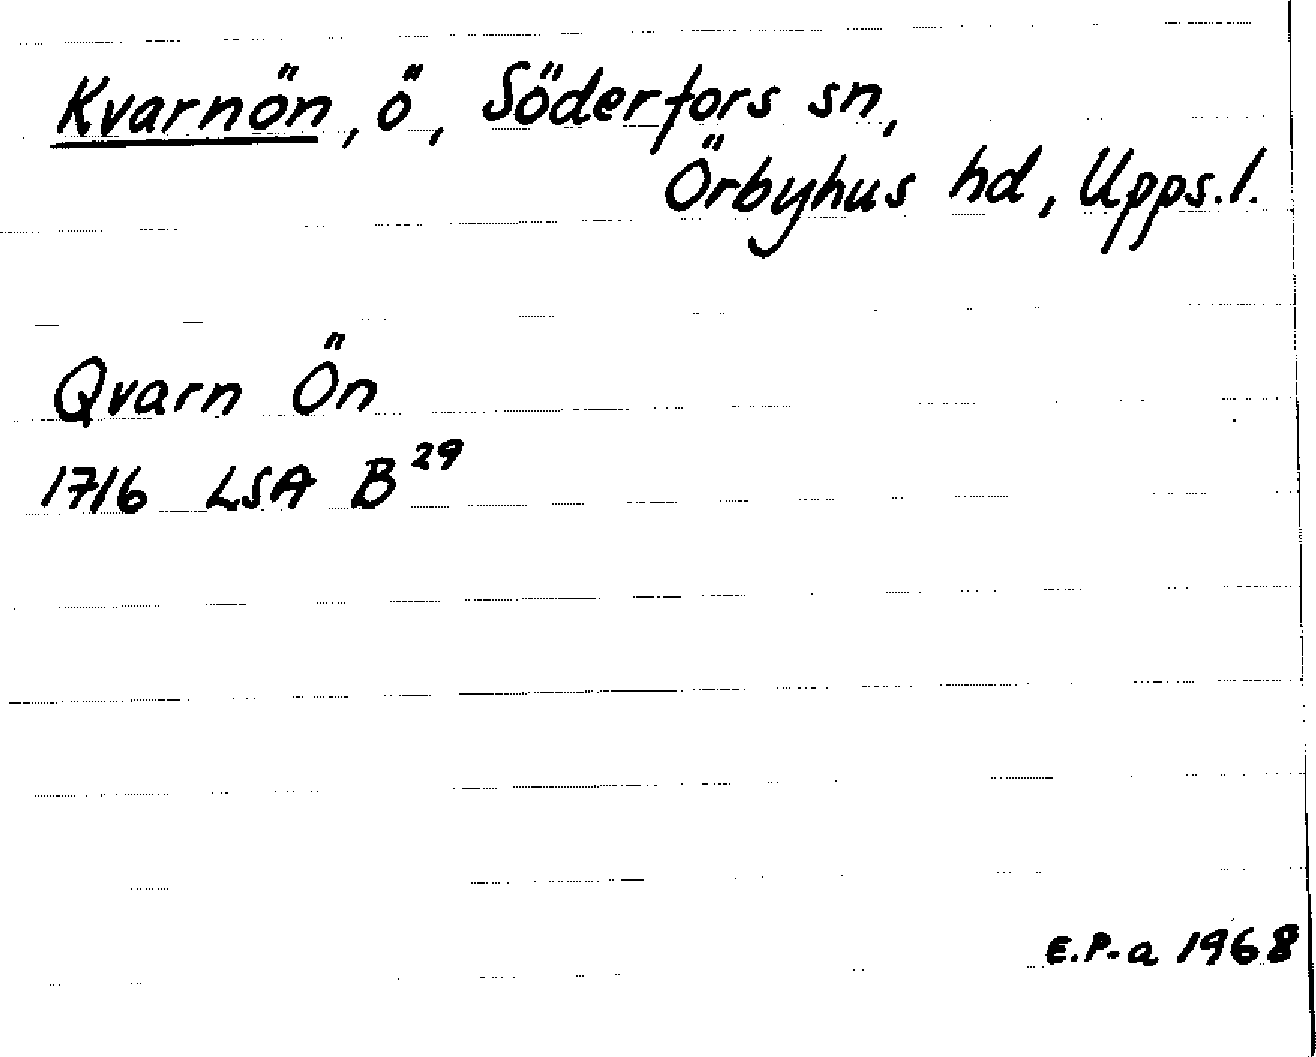 Kvarnön, ö, Söderfors sn,
Örbyhus hd, Upps.l.
Qvarn Ön
1716 LSA B²⁹
E.P-a 1968